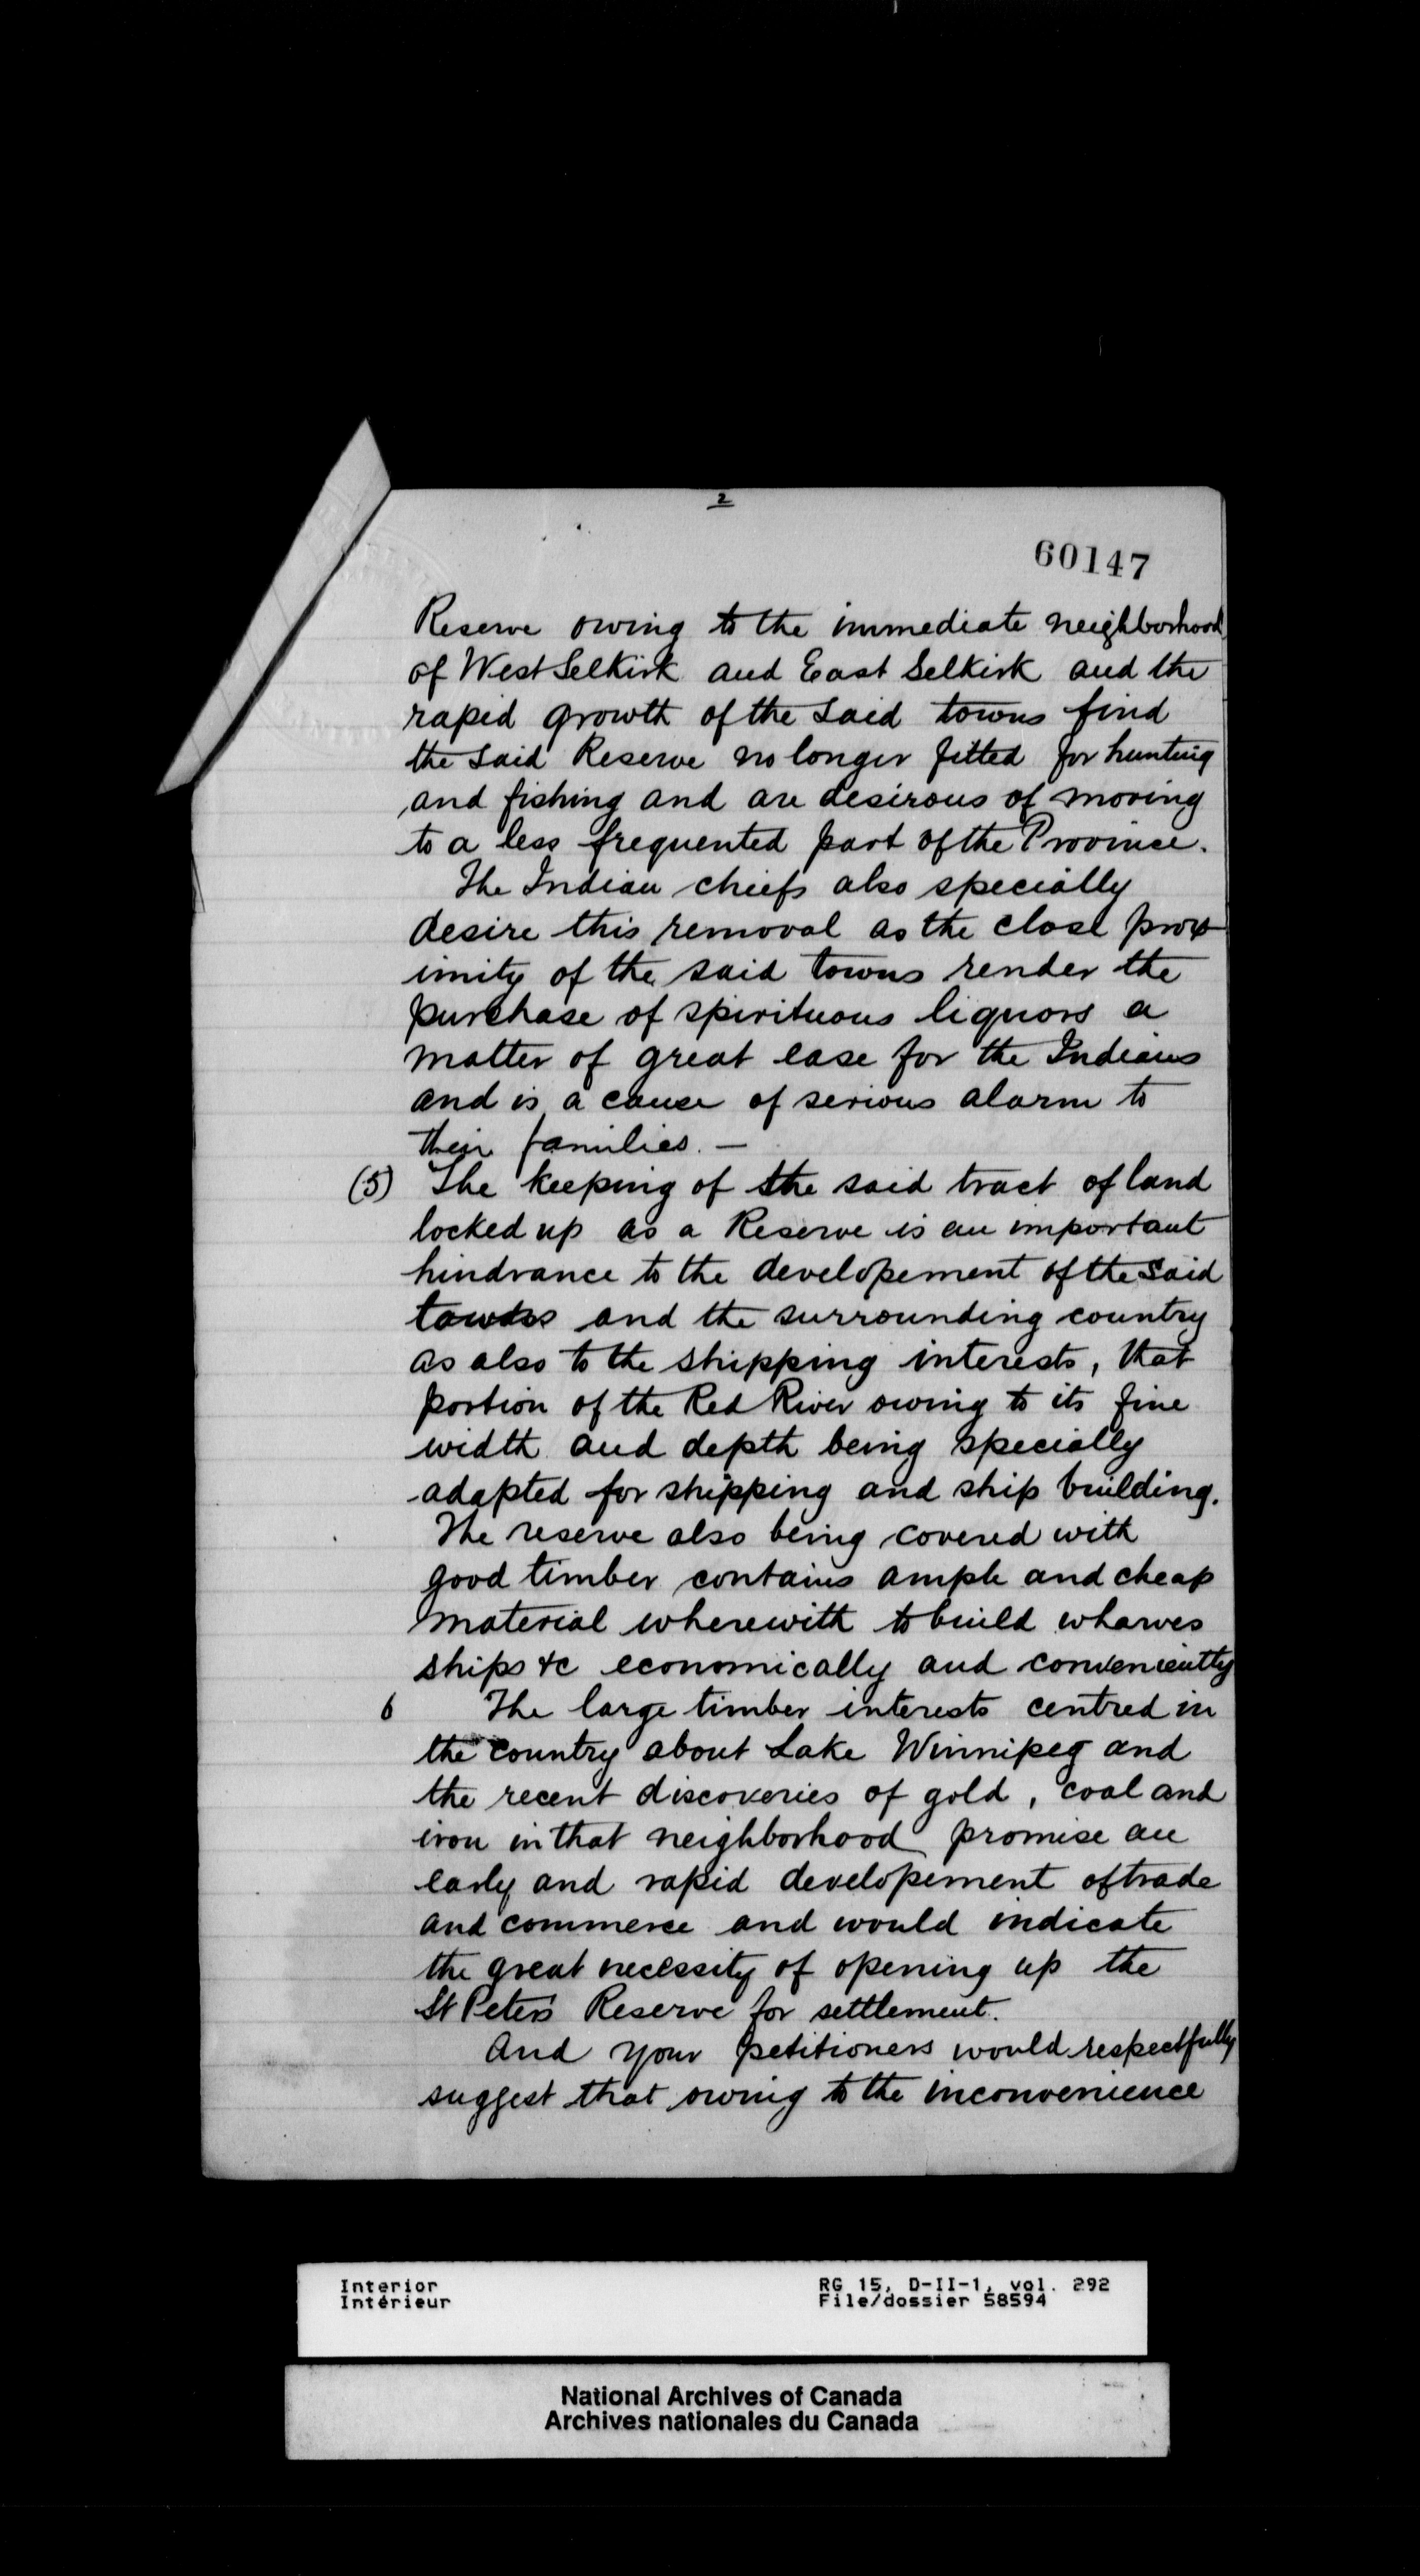 2
60147
Reserve owing to the immediate neighborhood
of West Selkirk and East Selkirk and the
rapid growth of the said towns find
the said Reserve no longer fitted for hunting
and fishing and are desirous of moving
to a less frequented part of the Province.
The Indian chiefs also specially
desire this removal as the close prox-
imity of the said towns render the
purchase of spirituous liquors a
matter of great ease for the Indians
and is a cause of serious alarm to
their families. —
(5) The keeping of the said tract of land
locked up as a Reserve is an important
hindrance to the developement of the said
towns and the surrounding country
as also to the shipping interests, that
portion of the Red River owing to its fine
width and depth being specially
adapted for shipping and ship building.
The reserve also being covered with
good timber contains ample and cheap
material wherewith to build wharves
ships &c economically and conveniently
6 The large timber interests centred in
the country about Lake Winnipeg and
the recent discoveries of gold, coal and
iron in that neighborhood promise an
early and rapid developement of trade
and commerce and would indicate
the great necessity of opening up the
St Peter's Reserve for settlement.
And your petitioners would respectfully
suggest that owing to the inconvenience
Interior RG 15, D-II-1, vol. 292
Intérieur File/dossier 58594
National Archives of Canada
Archives nationales du Canada